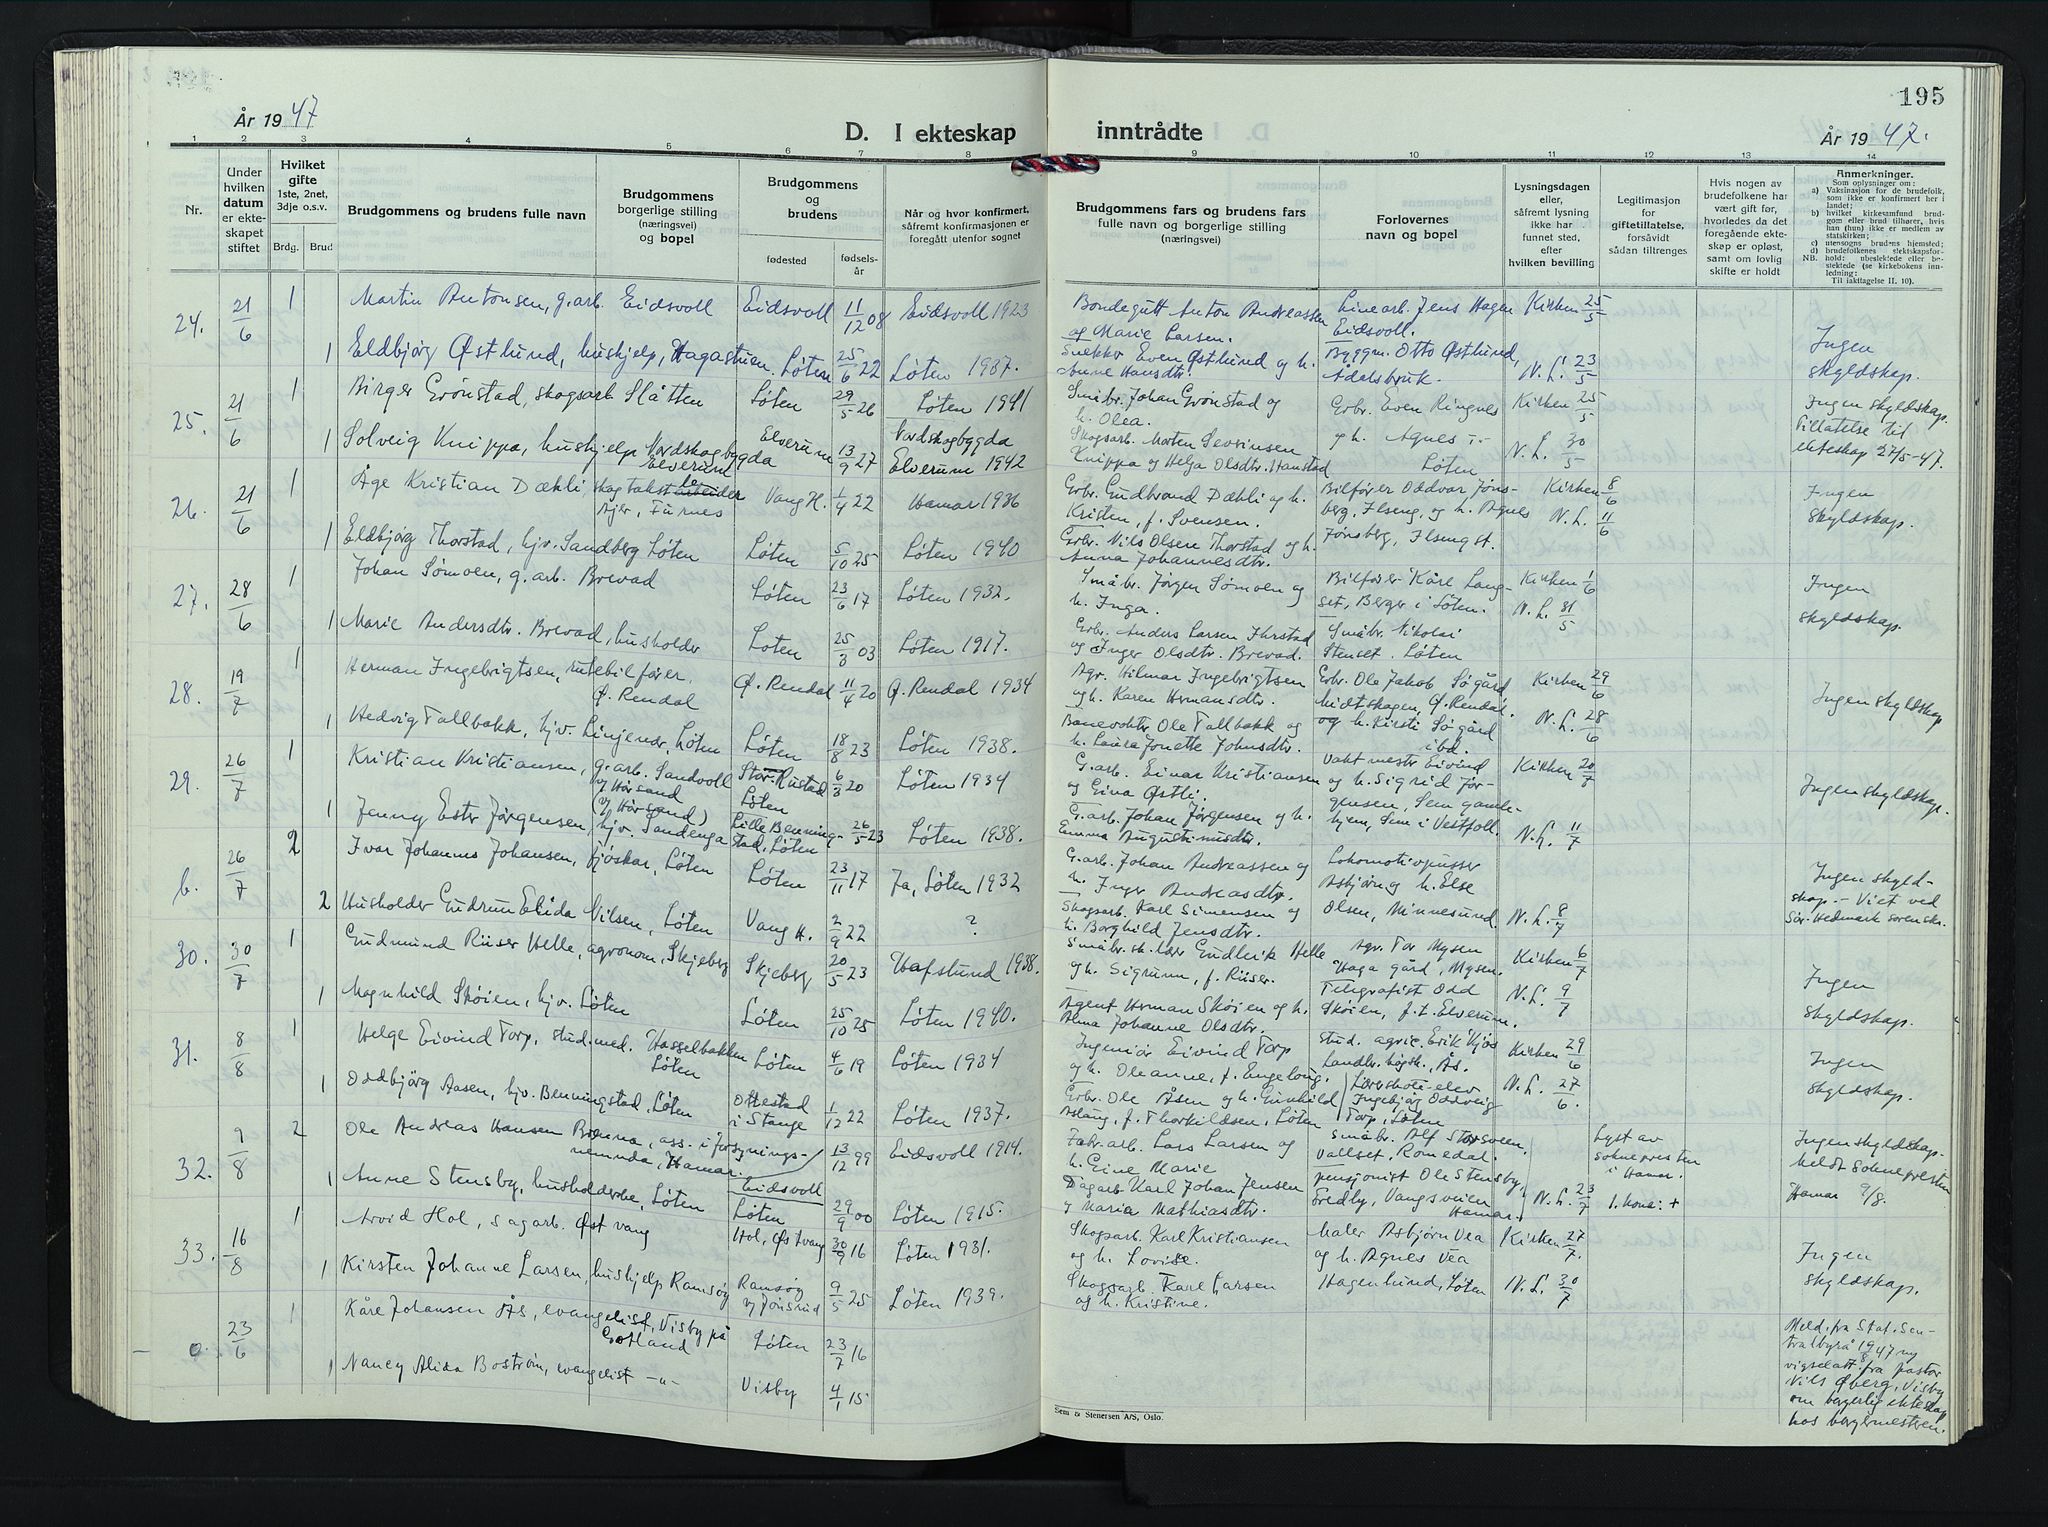 År 1947
D. I ekteskap inntrådte
År 1947.
195
1 2 3 4 5 6 7 8 9 10 11 12 13 14
Nr.
Under hvilken datum er ekte-skapet stiftet
Hvilket gifte 1ste, 2net, 3dje o.s.v.
Brdg. Brud
Brudgommens og brudens fulle navn
Brudgommens borgerlige stilling (næringsvei) og bopel
Brudgommens og brudens
fødested
fødsels-år
Når og hvor konfirmert, såfremt konfirmasjonen er foregått utenfor sognet
Brudgommens fars og brudens fars fulle navn og borgerlige stilling (næringsvei)
Forlovernes navn og bopel
Lysningsdagen eller, såfremt lysning ikke har funnet sted, efter hvilken bevilling
Legitimasjon for giftetillatelse, forsåvidt sådan tiltrenges
Hvis nogen av brudefolkene har vært gift før, hvorledes da det foregående ekte-skap er opløst, samt om lovlig skifte er holdt
Anmerkninger.
Som oplysninger om:
a) Vaksinasjon for de brudefolk, som ikke er konfirmert her i landet;
b) hvilket kirkesamfund brud-gom eller brud tilhører, hvis han (hun) ikke er medlem av statskirken;
c) utensogns brudens hjemsted;
d) brudefolkenes slektskapsfor-hold: ubeslektede eller be-slektede (se kirkebokens inn-ledning:
NB.
Til iakttagelse II. 10).
24. 21/6 1 Martin Antonsen, g.arb. Eidsvoll Eidsvoll 11/12 08 Eidsvoll 1923 Bondegutt Anton Andreassen Linearb. Jens Hagen Kirken 25/5
og Marie Larsen. Eidsvoll.
1 Eldbjørg Østlund, hushjelp, Hagastuen. Løten 25/6 22 Løten 1937. Snekker Even Østlund og h. Byggm. Otto Østlund, N.L. 23/5 Ingen
Anne Hansdtr. Ådalsbruk. skyldskap.
25. 21/6 1 Birger Grønstad, skogsarb. Slåtten Løten 29/5 26 Løten 1941 Småbr. Johan Grønstad og Grbr. Even Ringnes Kirken 25/5 Ingen skyldskap.
h. Olea. og h. Agnes Tillatelse til
1 Solveig Knippa, hushjelp Nordskogbygda Elverum Elverum 13/9 27 Nordskogbygda Elverum 1942 Skogsarb. Morten Severinsen N.L. 30/5 ekteskap 27/5-47.
Knippa og Helga Olsdtr. Hanstad Løten
26. 21/6 1 Åge Kristian Dækli, skogtakst Ajer, Furnes Vang H. 1/4 22 Hamar 1936 Grbr. Gudbrand Dækli og h. Bilfører Oddvar Jøns- Kirken 8/6 Ingen
Kristen, f. Svensen. berg, Ilseng, og h. Agnes N.L. 11/6 skyldskap.
1 Eldbjørg Thorstad, hjv. Sandberg Løten Løten 5/10 25 Løten 1940 Grbr. Nils Olsen Thorstad og h. Jønsberg, Ilsengst.
Anna Johannesdtr.
27. 28/6 1 Johan Sømoen, g.arb. Brevad Løten 23/6 17 Løten 1932. Småbr. Jørgen Sømoen og Bilfører Kåre Lang- Kirken 1/6 Ingen
h. Inga. set, Berger i Løten. N.L. 31/5 skyldskap.
1 Marie Andersdtr. Brevad, husholder Løten 25/3 03 Løten 1917. Grbr. Anders Larsen Ihrstad Småbr. Nikolai
og Inger Olsdtr. Brevad. Stenset. Løten
28. 19/7 1 Herman Ingebrigtsen, rutebilfører. Ø. Rendal Ø. Rendal 11/4 20 Ø. Rendal 1934 Agr. Hilmar Ingebrigtsen Grbr. Ole Jakob Søgård Kirken 29/6 Ingen skyldskap
og h. Karen Hermansdtr. Midtskogen, Ø. Rendal.
1 Hedvig Tallbakk, hjv. Linjevær, Løten Løten 18/8 23 Løten 1938. Banevokter Ole Tallbakk og og h. Kirsti Søgård N.L. 28/6
h. Laura Jonette Johnsdtr. ibd.
29. 26/7 1 Kristian Kristiansen, g.arb. Sandvoll v/Hørsand Stor-Rustad Løten 6/3 20 Løten 1934 G.arb. Einar Kristiansen Vaktmester Eivind Kirken 20/7 Ingen skyldskap.
og Gina Østli. og h. Sigrid Jør-
1 Jenny Ester Jørgensen, hjv. Sandenga (v/Hørsand) Lille Benning-stad, Løten 26/5 23 Løten 1938. G.arb. Johan Jørgensen og h. gensen, Sem gamle- N.L. 11/7
Emma Augustinusdtr. hjem, Sem i Vestfoll.
b. 26/7 2 Ivar Johannes Johansen, fjøskar, Løten Løten 23/11 17 Ja, Løten 1932 G.arb. Johan Andreassen og Lokomotivpusser Ingen skyld-
h. Inger Andreasdtr. Asbjørn og h. Else skap. - Viet ved
2 Husholder Gudrun Elida Nilsen, Løten Vang H. 2/9 22 ? Skogsarb. Karl Simensen og Olsen, Minnesund. N.L. 8/7 Sør-Hedmark sorenskr.
h. Borghild Jensdtr.
30. 30/7 1 Gudmund Riiser Helle, agronom, Skjeberg Skjeberg 20/5 23 Hafslund 1938. Småbr. sk. lærer Gudlerik Helle Agr. Tor Mysen Kirken 6/7 Ingen
og h. Sigrunn, f. Riiser. Haga gård, Mysen.
1 Magnhild Skøien, hjv. Løten Løten 25/10 25 Løten 1940. Agent Herman Skøien og h. Telegrafist Odd N.L. 9/7 skyldskap.
Alma Johanne Olsdtr. Skøien, f.t. Elverum.
31. 8/8 1 Helge Eivind Torp, stud. med. Hasselbakken Løten Løten 4/6 19 Løten 1934 Ingeniør Eivind Torp Stud. agric. Erik Kjos Kirken 29/6 Ingen
og h. Oleanne, f. Engelong. Landbr. høgsk., Ås.
1 Oddbjørg Aasen, hjv. Benningstad, Løten Ottestad i Stange 1/12 22 Løten 1937. Grbr. Ole Åsen og h. Gunhild Lærerskole-elev N.L. 27/6. skyldskap.
Aslaug, f. Thorkildsen, Løten Ingebjørg Oddveig Torp, Løten
32. 9/8 2 Ole Andreas Hansen Brenna, ass. i forsynings-nemnda, Hamar. Eidsvoll 13/12 99 Eidsvoll 1914. Fabr.arb. Lars Larsen og Småbr. Alf Storsveen, Lyst av sokneprestenn i Hamar. Ingen skyldskap.
h. Eine Marie Vallset, Romedal. Meldt sokneprestenn
1 Anne Stensby, husholderske, Løten Løten 29/9 00 Løten 1915. Dagarb. Karl Johan Jensen pensjonist Ole Stensby, N.L. 23/7 1. kona: + Hamar 9/8.
og Maria Mathiasdtr. Fredby, Vangsveien Hamar.
33. 16/8 1 Arvid Hol, sagarb. Østvang Hol, Østvang 30/9 16 Løten 1931. Skogsarb. Karl Kristiansen Maler Asbjørn Vea Kirken 27/7. Ingen
og h. Lovise. og h. Agnes Vea
1 Kirsten Johanne Larsen, hushjelp Ramsøy Ramsøy v/Jønsrud 9/5 25 Løten 1939. Skogsarb. Karl Larsen Hagenlund, Løten N.L. 30/7 skyldskap.
og h. Kristine.
0. 23/6 1 Kåre Johansen Ås, evangelist, Visby på Gotland Løten 23/7 16 Meld. fra Stat. Sen-
tralbyrå 19/8 47 ny
1 Nancy Alida Boström, evangelist -"- Visby 4/1 15 vigselatt. fra pastor
Nils Øberg, Visby
om borgerlig ekteskap
hos borgermesteren.
Sem & Stenersen A/S, Oslo.